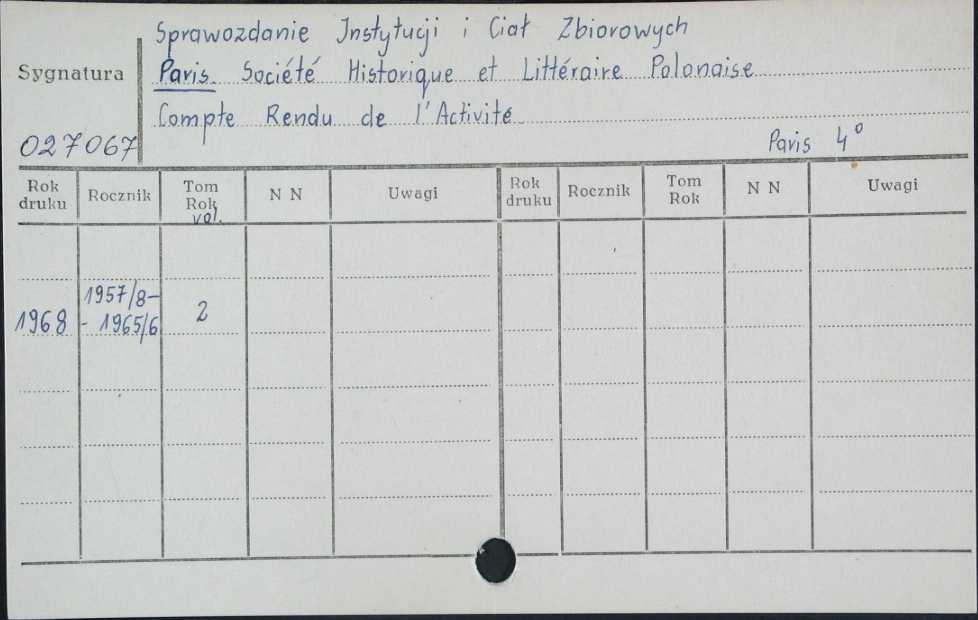 Sprawozdanie Instytucji i Ciał Zbiorowych
Sygnatura
Paris. Société Historique et Littéraire Polonaise
Compte Rendu de l'Activité
027067
Paris 4°
Rok druku Rocznik Tom Rok vol. N N Uwagi Rok druku Rocznik Tom Rok N N Uwagi
1957/8-
1968 - 1965/6 2